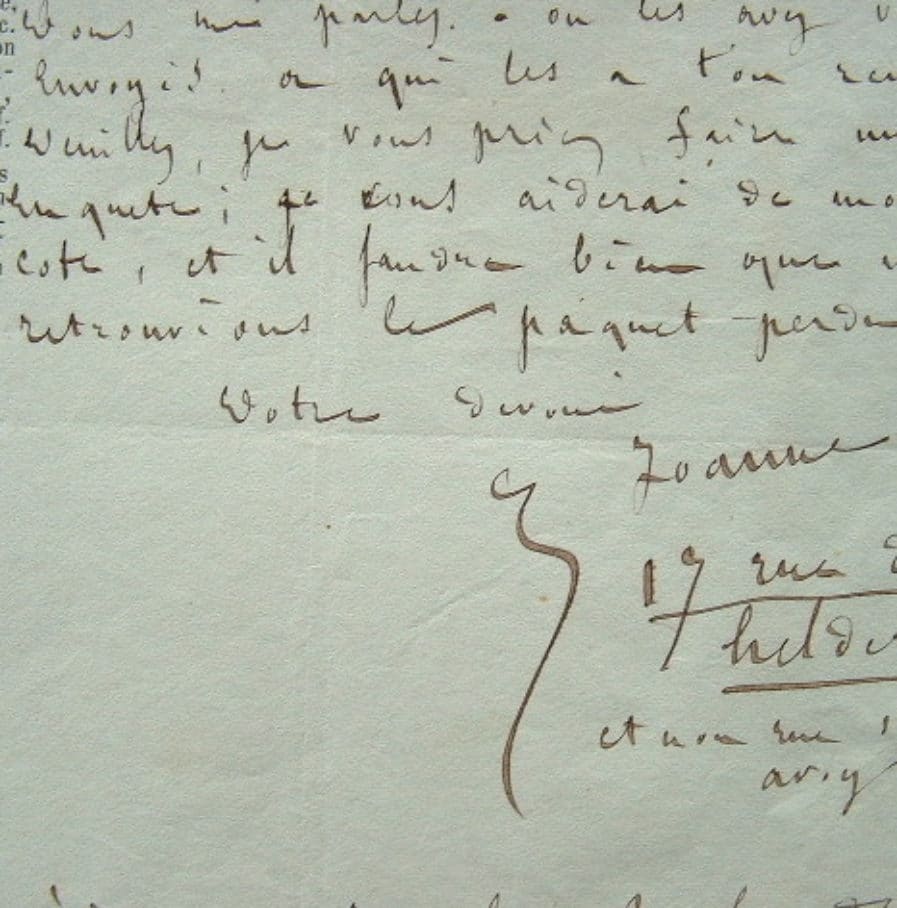 Vous me parlez. ou les avez v
Envoyés. ou qui les a t'on rem
Veuillez, je vous prie, faire un
Enquete; je vous aiderai de mo
cote, et il faudra bien que n
retrouvions le paquet perdu
Votre devoué
Joanne
17 rue d
helde
et non rue